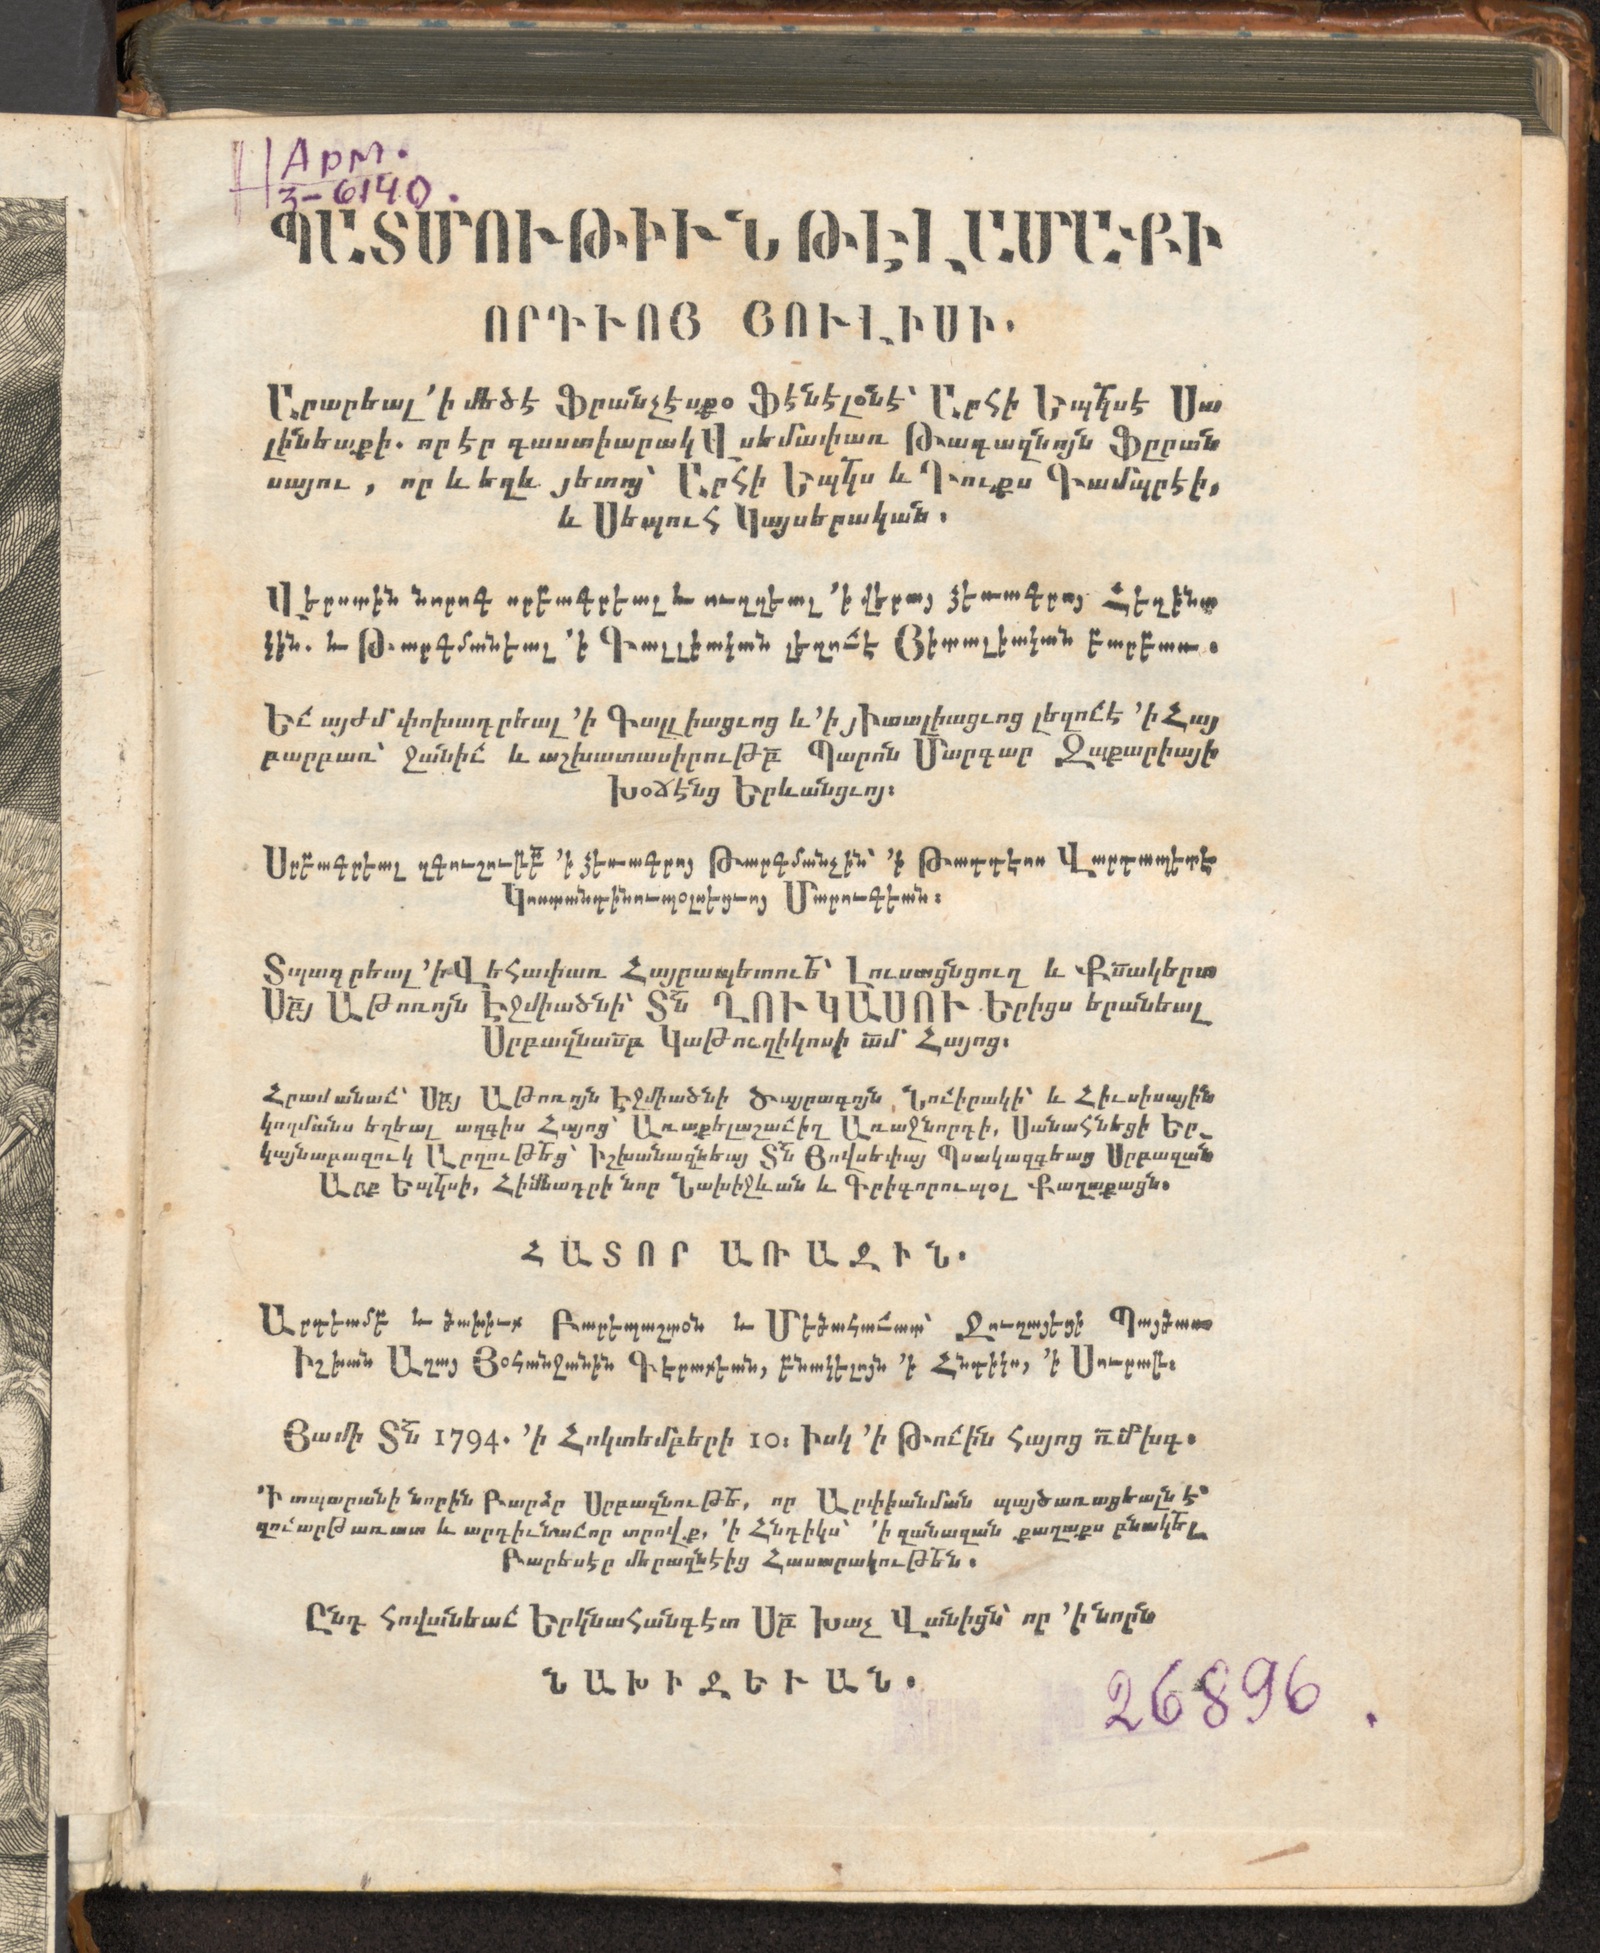 Арм.
3-6140.
ՊԱՏՄՈՒԹԻՒՆ ԹԷԼԱՄԱՔԻ
ՈՐԴՒՈՑ ՅՈՒԼԻՍԻ.
Արարեալ ՚ի մեծէ Ֆրանչէսքօ Ֆէնէլօնէ՝ Արհի Եպկսէ Սա
լինեաքի. որ էր դաստիարակ Վսեմափառ Թագազնոյն Ֆըրան
սայու, որ և եղև յետոյ՝ Արհի Եպկս և Դուքս Գամպրէի,
և Սեպուհ Կայսերական.
Վերստին նորոգ սրբագրեալ և ուղղեալ ՚ի վերայ ձեռագրոյ Հեղինա
կին. և Թարգմանեալ ՚ի Գալլիական լեզուէ Յիտալիական բարբառ.
Եւ այժմ փոխադրեալ ՚ի Գալլիացւոց և ՚ի յԻտալիացւոց լեզուէ ՚ի Հայ
բարբառ՝ ջանիւ և աշխատասիրութբ Պարոն Մարգար Զաքարիայի
Խօճէնց Երևանցւոյ:
Սրբագրեալ զգուշութբ ՚ի ձեռագրոյ Թարգմանչին՝ ՚ի Թադդէոս Վարդապետէ
Կոստանդինուպօլսեցւոյ Մարուգեան:
Տպադրեալ ՚ի Վեհափառ Հայրապետութե՝ Լուսազնցուղ և Քռնակերտ
Սբյ Աթոռոյն Էջմիածնի՝ Տն ՂՈՒԿԱՍՈՒ Երիցս երանեալ
Սրբազնասբ Կաթուղիկոսի ամ Հայոց:
Հրամանաւ՝ Սբյ Աթոռոյն Էջմիածնի Ծայրագոյն Նուիրակի՝ և Հիւսիսային
կողմանս եղեալ ազգիս Հայոց՝ Առաքելաշաւիղ Առաջնորդի, Սանահնեցի Եր
կայնաբազուկ Արղութեց՝ Իշխանազնեայ Տն Յովսեփայ Պսակազգեաց Սրբազան
Արք Եպկսի, Հիմնադրի նոր Նախիջևան և Գրիգորուպօլ Քաղաքացն.
ՀԱՏՈՐ ԱՌԱՋԻՆ.
Արդեամբ և ծախիւք Բարեպաշտօն և Մեծահաւատ՝ Ջուղայեցի Պայծառ
Իշխան Աղայ Յօհանջանին Գերաքեան, բնակելոյն ՚ի Հնդիկս, ՚ի Սուրաթ:
Յամի Տն 1794. ՚ի Հոկտեմբերի 10: Իսկ ՚ի Թուին Հայոց ռմխգ.
՚Ի տպարանի նորին Բարձր Սրբազնութե, որ Արփիանման պայծառացեալն է՝
զուարթ առատ և արդիւնաւոր տրովք, ՚ի Հնդիկս՝ ՚ի զանազան քաղաքս բնակել
Բարեսէր մերազնէից Հասարակութեն.
Ընդ հովանեաւ Երկնահանգէտ Սբ Խաչ Վանիցն՝ որ ՚ի նորն
ՆԱԽԻՋԵՒԱՆ.
26896.